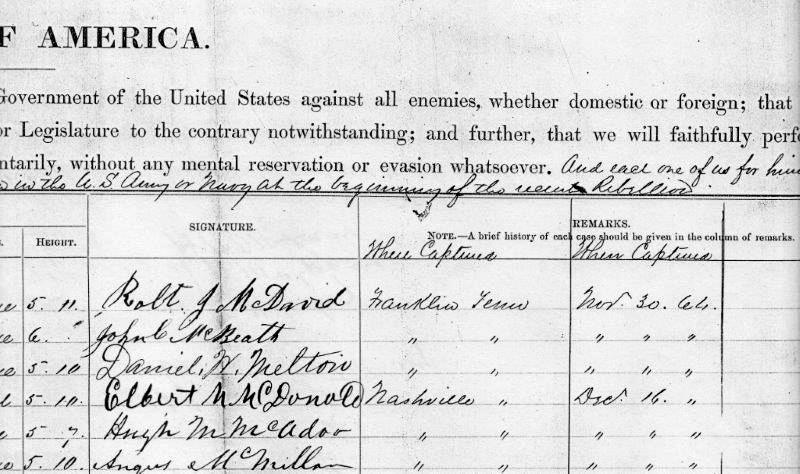 F AMERICA.
Government of the United States against all enemies, whether domestic or foreign; that
or Legislature to the contrary notwithstanding; and further, that we will faithfully perfo
ntarily, without any mental reservation or evasion whatsoever. And each one of us for him
in the U.S Army or Navy at the beginning of the recent Rebellion.
HEIGHT. SIGNATURE. REMARKS.
NOTE.—A brief history of each case should be given in the column of remarks.
Where Captured When Captured
5. 11. Robt. J McDavid Franklin Tenn Nov. 30. 64.
6. " John C McBeath " " " " "
5. 10 Daniel. W. Melton " " " " "
5. 10. Elbert N McDonald Nashville " Dec. 16. "
5 7. Hugh M McAdoo " " " " "
5. 10. Angus McMillan " " " " "